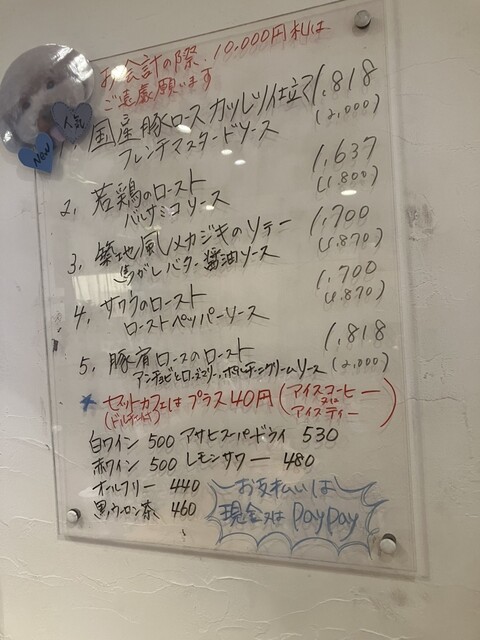 お会計の際、10,000円札は
ご遠慮願います
人気
NEW
国産豚ロースカツレツ仕立て 1,818
フレンチマスタードソース (2,000)
2, 若鶏のロースト 1,637
バルサミコソース (1,800)
3, 築地風メカジキのソテー 1,700
焦がしバター醤油ソース (1,870)
4, サワラのロースト 1,700
ローストペッパーソース (1,870)
5, 豚肩ロースのロースト 1,818
アンチョビとローズマリー、ポルチーニクリームソース (2,000)
★ セットカフェはプラス40円 (アイスコーヒー
又は
アイスティー)
白ワイン 500 アサヒスーパードライ 530
赤ワイン 500 レモンサワー 480
オールフリー 440
黒ウーロン茶 460
お支払いは
現金又は PayPay